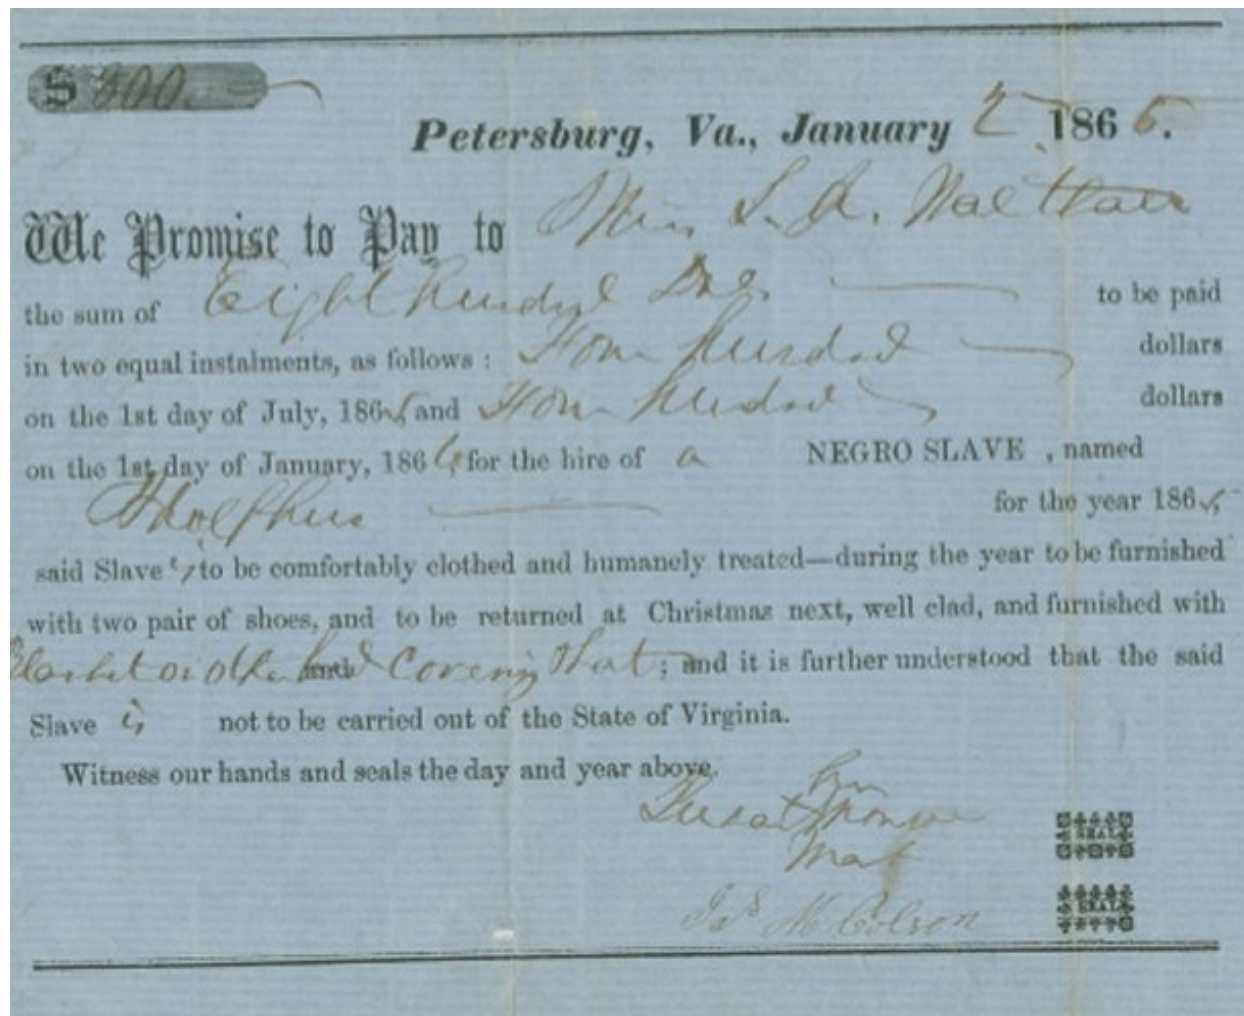 $ 800.
Petersburg, Va., January 2 1865.
We Promise to Pay to Miss L. A.
the sum of Eight hundred Dols. to be paid
in two equal instalments, as follows: Four hundred dollars
on the 1st day of July, 1865 and Four hundred dollars
on the 1st day of January, 1866, for the hire of a NEGRO SLAVE, named
Adolphus for the year 1865,
said Slave is, to be comfortably clothed and humanely treated—during the year to be furnished
with two pair of shoes, and to be returned at Christmas next, well clad, and furnished with
Blanket or other bed Covering Hat; and it is further understood that the said
Slave is, not to be carried out of the State of Virginia.
Witness our hands and seals the day and year above.
his
SEAL
mark
Jas M Colson SEAL